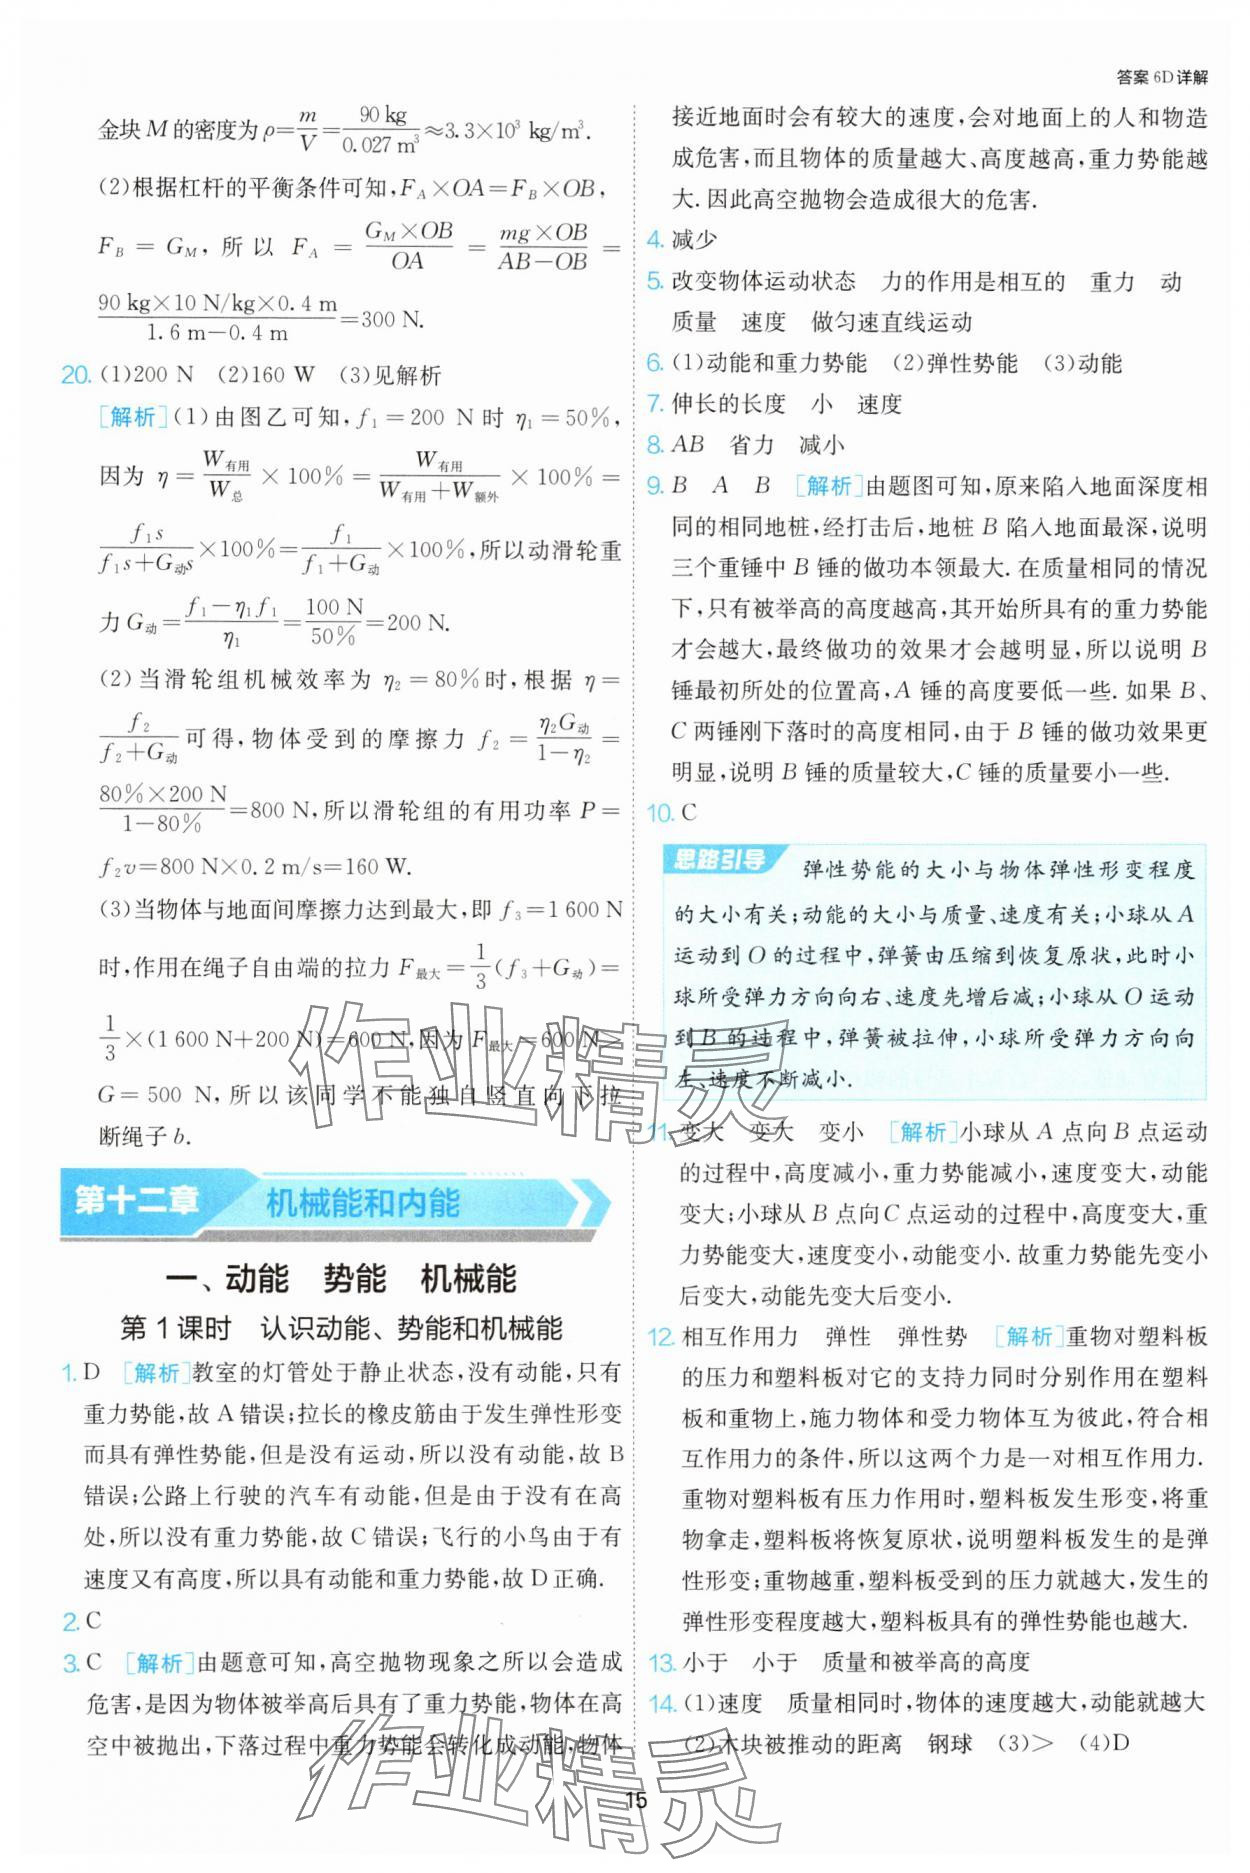 答案 6D 详解
金块 M 的密度为 ρ=m/V=90 kg/0.027 m³≈3.3×10³ kg/m³.
(2)根据杠杆的平衡条件可知,F_A×OA=F_B×OB,
F_B = G_M, 所以 F_A = G_M×OB/OA = mg×OB/AB−OB =
90 kg×10 N/kg×0.4 m/1.6 m−0.4 m=300 N.
20. (1)200 N (2)160 W (3)见解析
[解析](1)由图乙可知, f₁=200 N 时 η₁=50%,
因为 η = W有用/W总 × 100% = W有用/W有用+W额外 × 100% =
f₁s/f₁s+G动s×100%=f₁/f₁+G动×100%,所以动滑轮重
力 G动=f₁−η₁f₁/η₁=100 N/50%=200 N.
(2)当滑轮组机械效率为 η₂=80%时,根据 η=
f₂/f₂+G动可得,物体受到的摩擦力 f₂=η₂G动/1−η₂=
80%×200 N/1−80%=800 N,所以滑轮组的有用功率 P=
f₂v=800 N×0.2 m/s=160 W.
(3)当物体与地面间摩擦力达到最大,即 f₃=1 600 N
时,作用在绳子自由端的拉力 F最大=1/3(f₃+G动)=
1/3×(1 600 N+200 N)=600 N,因为 F最大=600 N>
G=500 N,所以该同学不能独自竖直向下拉
断绳子 b.
第十二章 机械能和内能
一、动能 势能 机械能
第 1 课时 认识动能、势能和机械能
1. D [解析]教室的灯管处于静止状态,没有动能,只有
重力势能,故 A 错误;拉长的橡皮筋由于发生弹性形变
而具有弹性势能,但是没有运动,所以没有动能,故 B
错误;公路上行驶的汽车有动能,但是由于没有在高
处,所以没有重力势能,故 C 错误;飞行的小鸟由于有
速度又有高度,所以具有动能和重力势能,故 D 正确.
2. C
3. C [解析]由题意可知,高空抛物现象之所以会造成
危害,是因为物体被举高后具有了重力势能,物体在高
空中被抛出,下落过程中重力势能会转化成动能,物体
接近地面时会有较大的速度,会对地面上的人和物造
成危害,而且物体的质量越大、高度越高,重力势能越
大. 因此高空抛物会造成很大的危害.
4. 减少
5. 改变物体运动状态 力的作用是相互的 重力 动
质量 速度 做匀速直线运动
6. (1)动能和重力势能 (2)弹性势能 (3)动能
7. 伸长的长度 小 速度
8. AB 省力 减小
9. B A B [解析]由题图可知,原来陷入地面深度相
同的相同地桩,经打击后,地桩 B 陷入地面最深,说明
三个重锤中 B 锤的做功本领最大. 在质量相同的情况
下,只有被举高的高度越高,其开始所具有的重力势能
才会越大,最终做功的效果才会越明显,所以说明 B
锤最初所处的位置高,A 锤的高度要低一些. 如果 B、
C 两锤刚下落时的高度相同,由于 B 锤的做功效果更
明显,说明 B 锤的质量较大,C 锤的质量要小一些.
10. C
思路引导 弹性势能的大小与物体弹性形变程度
的大小有关;动能的大小与质量、速度有关;小球从 A
运动到 O 的过程中,弹簧由压缩到恢复原状,此时小
球所受弹力方向向右、速度先增后减;小球从 O 运动
到 B 的过程中,弹簧被拉伸,小球所受弹力方向向
左、速度不断减小.
11. 变大 变大 变小 [解析]小球从 A 点向 B 点运动
的过程中,高度减小,重力势能减小,速度变大,动能
变大;小球从 B 点向 C 点运动的过程中,高度变大,重
力势能变大,速度变小,动能变小. 故重力势能先变小
后变大,动能先变大后变小.
12. 相互作用力 弹性 弹性势 [解析]重物对塑料板
的压力和塑料板对它的支持力同时分别作用在塑料
板和重物上,施力物体和受力物体互为彼此,符合相
互作用力的条件,所以这两个力是一对相互作用力.
重物对塑料板有压力作用时,塑料板发生形变,将重
物拿走,塑料板将恢复原状,说明塑料板发生的是弹
性形变;重物越重,塑料板受到的压力就越大,发生的
弹性形变程度越大,塑料板具有的弹性势能也越大.
13. 小于 小于 质量和被举高的高度
14. (1)速度 质量相同时,物体的速度越大,动能就越大
(2)木块被推动的距离 钢球 (3)> (4)D
15
作业精灵
作业精灵